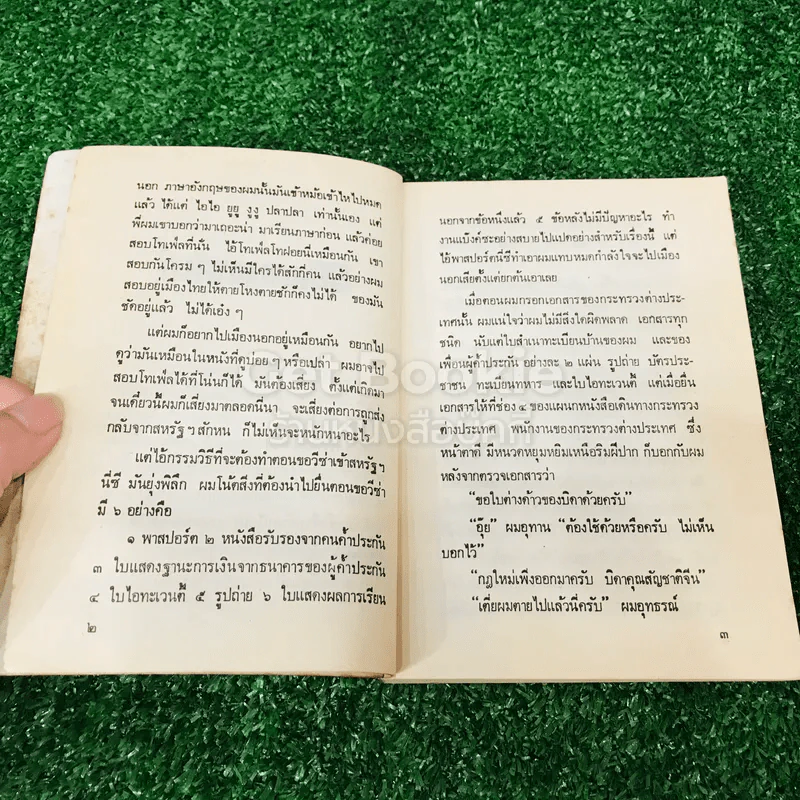 นอก ภาษาอังกฤษของผมนั้นมันเข้าหม้อเข้าไหไปหมด
แล้ว ได้แต่ ไอไอ ยูยู งูงู ปลาปลา เท่านั้นเอง แต่
พี่ผมเขาบอกว่ามาเถอะน่า มาเรียนภาษาก่อน แล้วค่อย
สอบโทเฟ็ลที่นั่น ไอ้โทเฟ็ลโทฝอยนี่เหมือนกัน เขา
สอบกันโครม ๆ ไม่เห็นมีใครได้สักกี่คน แล้วอย่างผม
สอบอยู่เมืองไทยให้ตายโหงตายชักก็คงไม่ได้ ของมัน
ชัดอยู่แล้ว ไม่ได้เอ๋ง ๆ
แต่ผมก็อยากไปเมืองนอกอยู่เหมือนกัน อยากไป
ดูว่ามันเหมือนในหนังที่ดูบ่อย ๆ หรือเปล่า ผมอาจไป
สอบโทเฟ็ลได้ที่โน่นก็ได้ มันต้องเสี่ยง ตั้งแต่เกิดมา
จนเดี๋ยวนี้ผมก็เสี่ยงมาตลอดนี่นา จะเสี่ยงต่อการถูกส่ง
กลับจากสหรัฐฯ สักหน ก็ไม่เห็นจะหนักหนาอะไร
แต่ไอ้กรรมวิธีที่จะต้องทำตอนขอวีซ่าเข้าสหรัฐฯ
นี่ซี มันยุ่งพิลึก ผมโน้ตสิ่งที่ต้องนำไปยื่นตอนขอวีซ่า
มี ๖ อย่างคือ
๑ พาสปอร์ต ๒ หนังสือรับรองจากคนค้ำประกัน
๓ ใบแสดงฐานะการเงินจากธนาคารของผู้ค้ำประกัน
๔ ใบไอทะเวนตี้ ๕ รูปถ่าย ๖ ใบแสดงผลการเรียน
๒
นอกจากข้อหนึ่งแล้ว ๕ ข้อหลังไม่มีปัญหาอะไร ทำ
งานแบ๊งค์ซะอย่างสบายไปแปดอย่างสำหรับเรื่องนี้ แต่
ไอ้พาสปอร์ตนี่ซีทำเอาผมแทบหมดกำลังใจจะไปเมือง
นอกเสียตั้งแต่ยกต้นเอาเลย
เมื่อตอนผมกรอกเอกสารของกระทรวงต่างประ-
เทศนั้น ผมแน่ใจว่าผมไม่มีสิ่งใดผิดพลาด เอกสารทุก
ชนิด นับแต่ใบสำเนาทะเบียนบ้านของผม และของ
เพื่อนผู้ค้ำประกัน อย่างละ ๒ แผ่น รูปถ่าย บัตรประ-
ชาชน ทะเบียนทหาร และใบไอทะเวนตี้ แต่เมื่อยื่น
เอกสารให้ที่ช่อง ๔ ของแผนกหนังสือเดินทางกระทรวง
ต่างประเทศ พนักงานของกระทรวงต่างประเทศ ซึ่ง
หน้าตาดี มีหนวดหยุมหยิมเหนือริมฝีปาก ก็บอกกับผม
หลังจากตรวจเอกสารว่า
“ขอใบต่างด้าวของบิดาด้วยครับ”
“อุ๊ย” ผมอุทาน “ต้องใช้ด้วยหรือครับ ไม่เห็น
บอกไว้”
“กฎใหม่เพิ่งออกมาครับ บิดาคุณสัญชาติจีน”
“เตี่ยผมตายไปแล้วนี่ครับ” ผมอุทธรณ์
๓
Cat Bookie